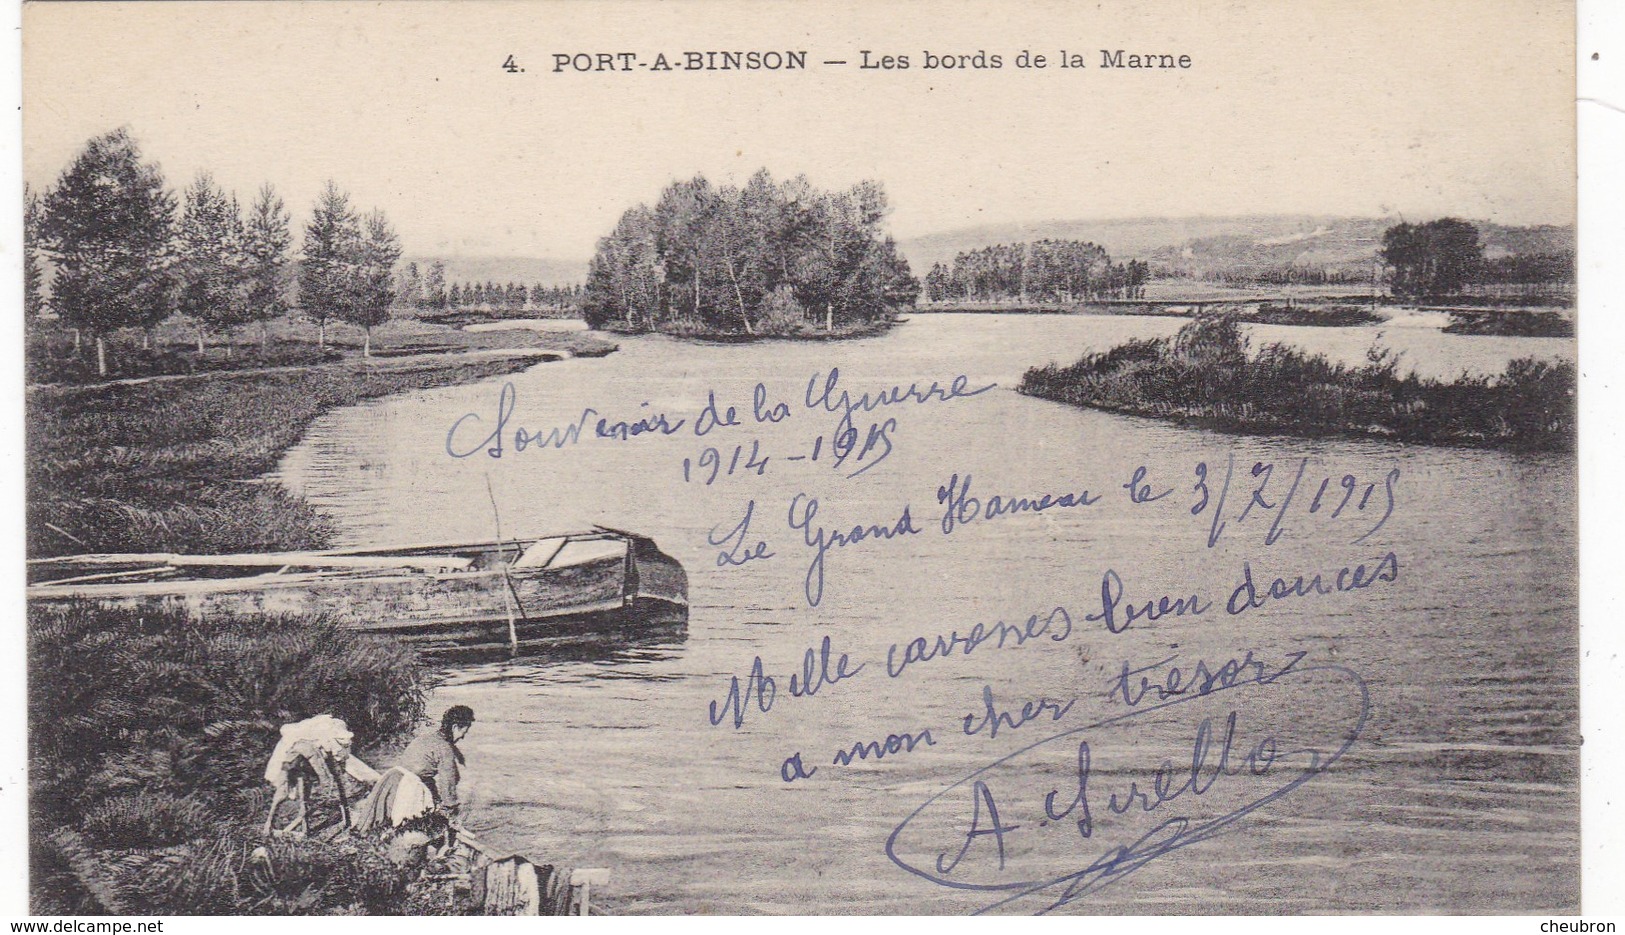 4. PORT-A-BINSON — Les bords de la Marne
Souvenir de la Guerre
1914-1915
Le Grand Hameau le 3/7/1915
Mille caresses bien douces
a mon cher tresor
A. Sirello
delcampe.net
cheubron